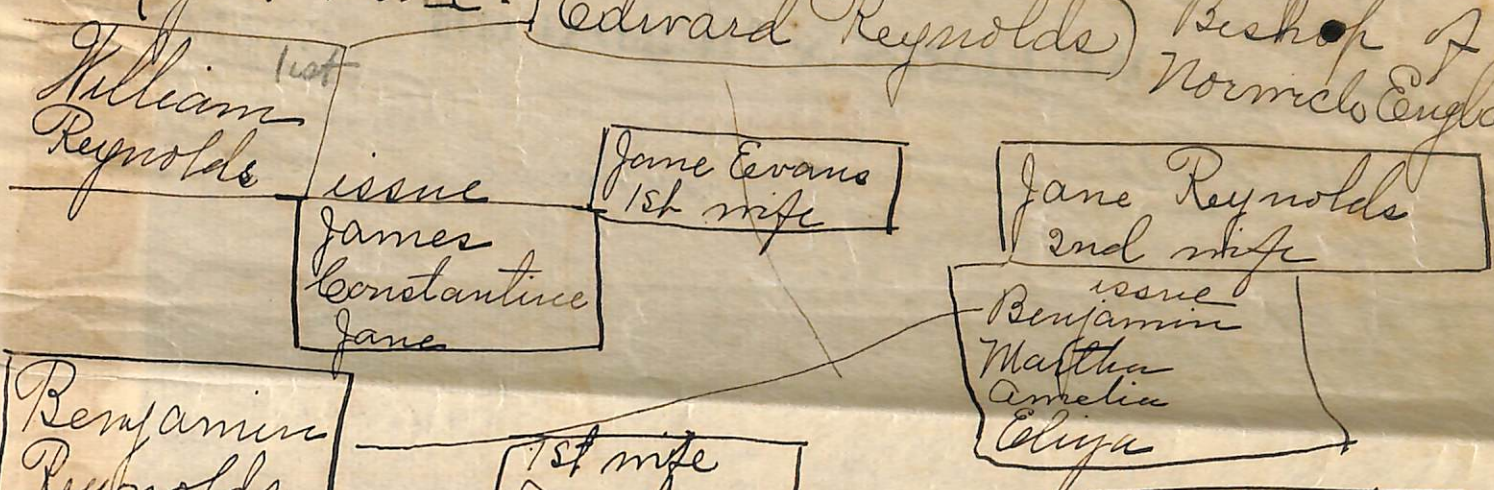 Edward Reynolds Bishop of
Norwich Engla
William
Reynolds
list
issue
James
Constantine
Jane
Jane Evans
1st wife
Jane Reynolds
2nd wife
issue
Benjamin
Martha
Amelia
Eliza
Benjamin
Reynolds
1st wife